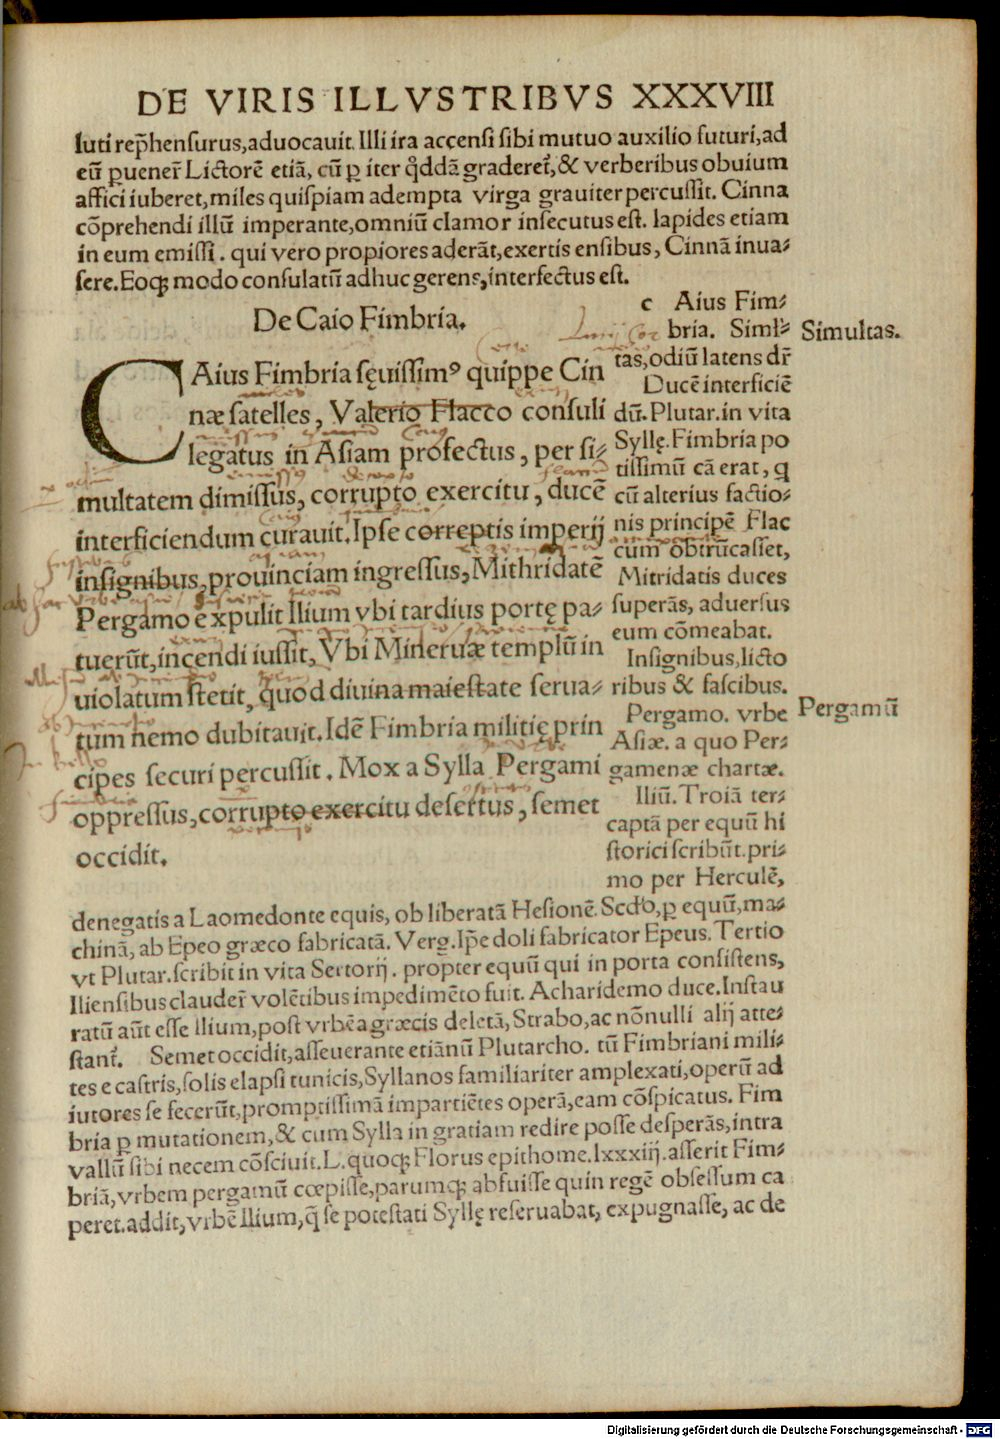 DE VIRIS ILLVSTRIBVS XXXVIII
luti rep̃hensurus, aduocauit. Illi ira accensi sibi mutuo auxilio futuri, ad
eũ ꝑuener̃ Lictorẽ etiã, cũ ꝑ iter q̊ddã graderet̃, & verberibus obuium
affici iuberet, miles quispiam adempta virga grauiter percussit. Cinna
cõprehendi illũ imperante, omniũ clamor insecutus est. lapides etiam
in eum emissi. qui vero propiores aderãt, exertis ensibus, Cinnã inua⸗
sere. Eoqꝫ modo consulatũ adhuc gerens, interfectus est.
De Caio Fimbria.
CAius Fimbria sęuissimꝰ quippe Cin
næ satelles, Valerio Flacco consuli
legatus in Asiam profectus, per si⸗
multatem dimissus, corrupto exercitu, ducẽ
interficiendum curauit. Ipse correptis imperij
insignibus, prouinciam ingressus, Mithridatẽ
Pergamo expulit Ilium vbi tardius portę pa⸗
tuerũt, incendi iussit, Vbi Mineruæ templũ in
uiolatum stetit, quod diuina maiestate serua⸗
tum nemo dubitauit. Idẽ Fimbria militię prin
cipes securi percussit. Mox a Sylla Pergami
oppressus, corrupto exercitu desertus, semet
occidit.
c Aius Fim⸗
bria. Siml̃⸗
tas, odiũ latens dr̃
Ducẽ interficiẽ
dũ. Plutar. in vita
Syllę. Fimbria po
tissimũ cã erat, q
cũ alterius factio⸗
nis principẽ Flac
cum obtrũcasset,
Mitridatis duces
superãs, aduersus
eum cõmeabat.
Insignibus, licto
ribus & fascibus.
Pergamo. vrbe
Asiæ. a quo Per⸗
gamenæ chartæ.
Iliũ. Troiã ter⸗
captã per equũ hi
storici scribũt. pri⸗
mo per Herculẽ,
Simultas.
Pergamũ
denegatis a Laomedonte equis, ob liberatã Hesionẽ. Scdo, ꝑ equũ, ma⸗
chinã, ab Epeo græco fabricatã. Verg. Ip̃e doli fabricator Epeus. Tertio
vt Plutar. scribit in vita Sertorij. propter equũ qui in porta consistens,
Iliensibus clauder̃ volẽtibus impedimẽto fuit. Acharidemo duce. Instau
ratũ aũt esse Ilium, post vrbẽ a græcis deletã, Strabo, ac nõnulli alij atte⸗
stant̃. Semet occidit, asseuerante etiãnũ Plutarcho. tũ Fimbriani mili⸗
tes e castris, solis elapsi tunicis, Syllanos familiariter amplexati, operũ ad
iutores se fecerũt, promptissimã impartiẽtes operã, eam cõspicatus. Fim
bria ꝑ mutationem, & cum Sylla in gratiam redire posse desperãs, intra
vallũ sibi necem cõsciuit. L. quoqꝫ Florus epithome. lxxxiij. asserit Fim⸗
briã, vrbem pergamũ cœpisse, parumqꝫ abfuisse quin regẽ obsessum ca
peret. addit, vrbẽ Ilium, q̃ se potestati Syllę reseruabat, expugnasse, ac de
Digitalisierung gefördert durch die Deutsche Forschungsgemeinschaft - DFG